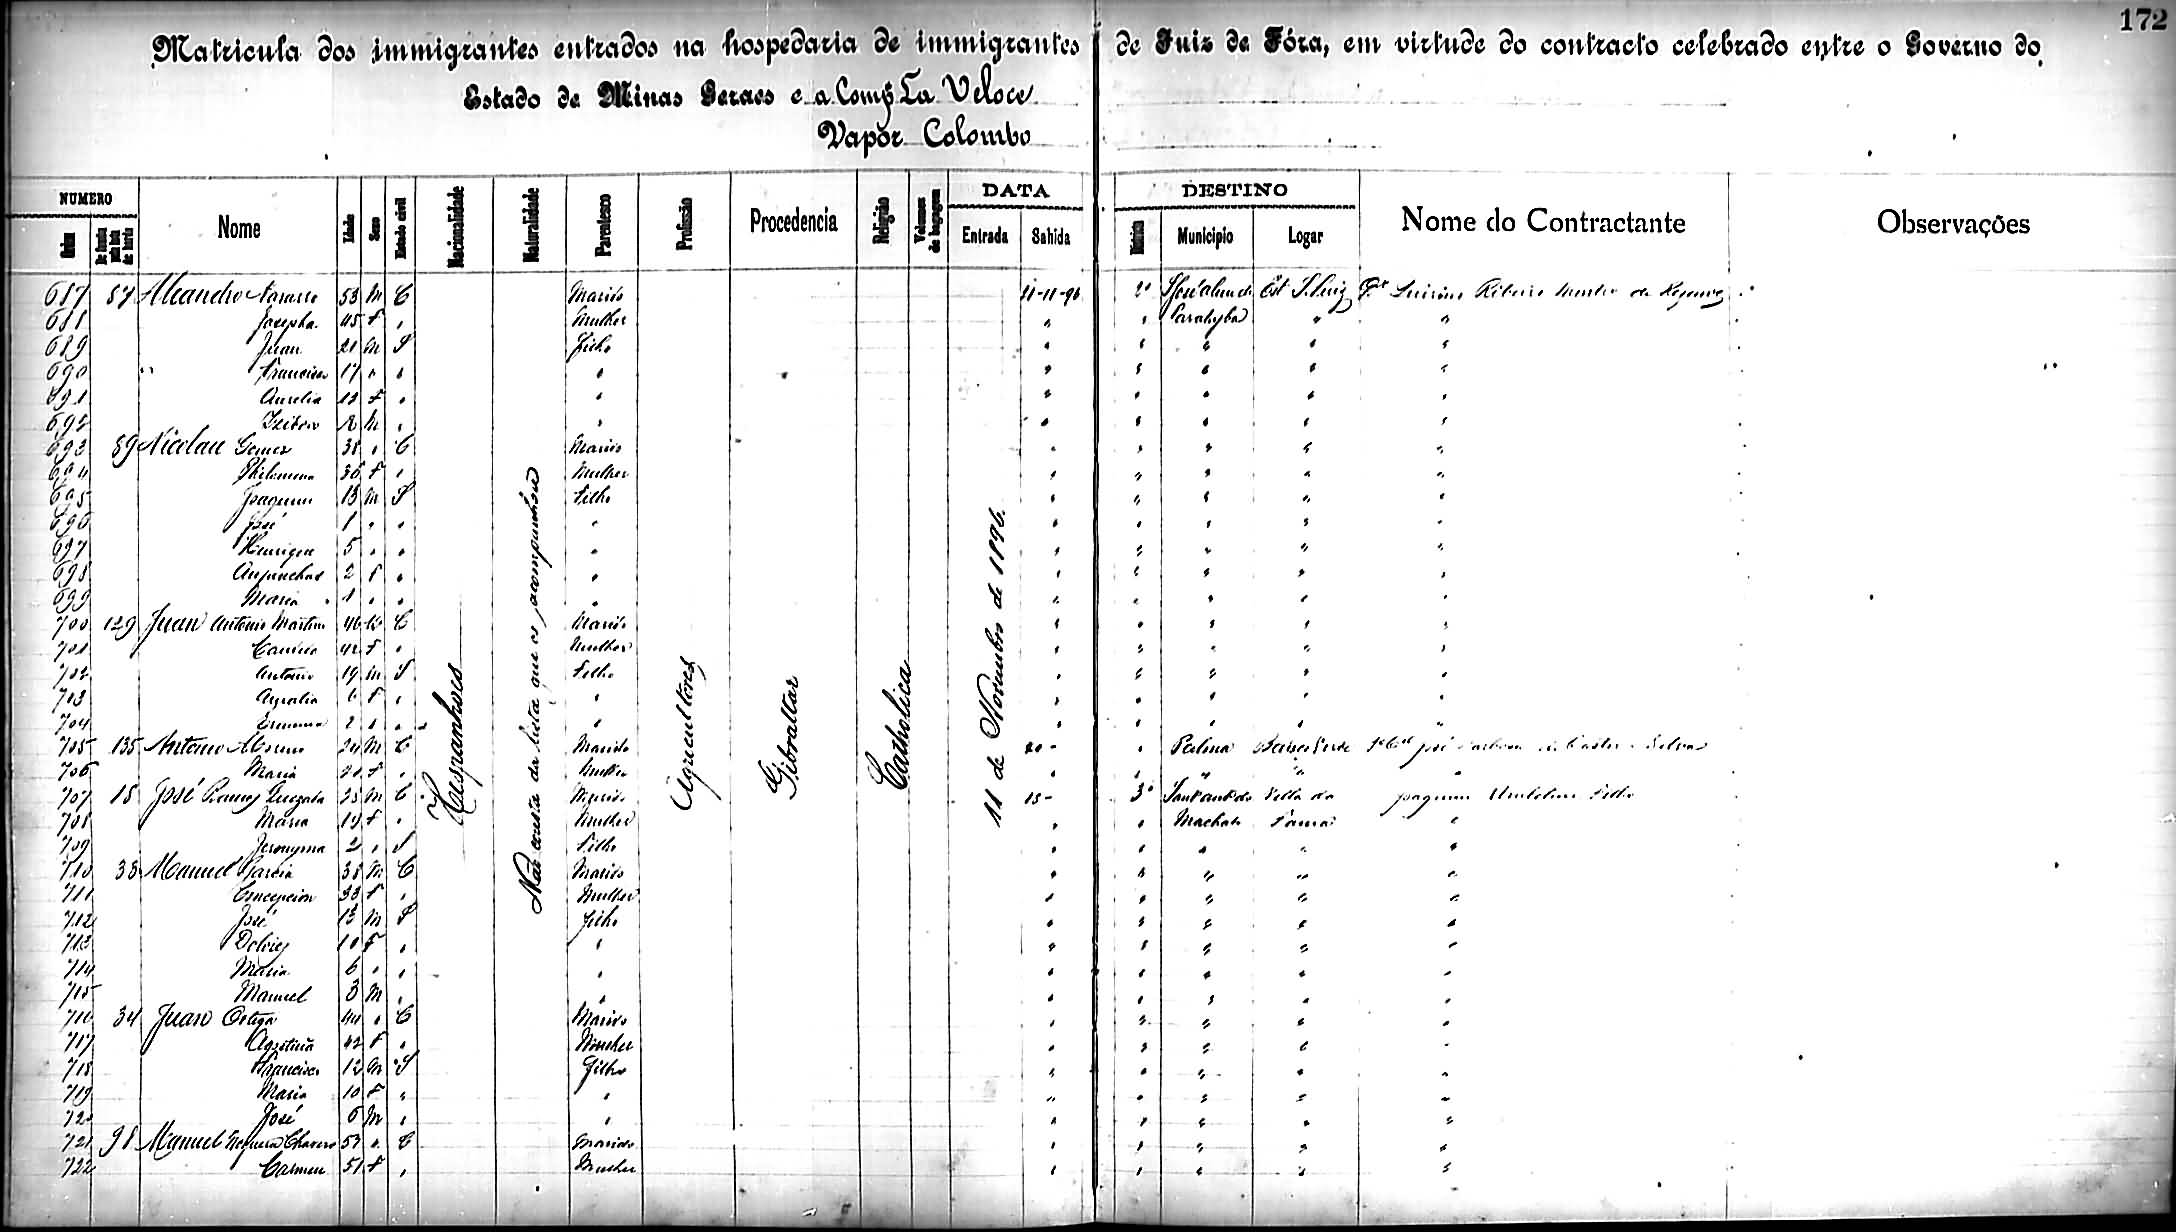 172
Matricula dos immigrantes entrados na hospedaria de immigrantes de Juiz de Fóra, em virtude do contracto celebrado entre o Governo do
Estado de Minas Geraes e a Comp La Veloce
Vapor Colombo
NUMERO Nome Idade Sexo Estado civil Nacionalidade Naturalidade Parentesco Profissão Procedencia Religião Volumes de bagagem DATA DESTINO Nome do Contractante Observações
Ordem Entrada Sahida Districto Municipio Logar
Hespanhoes
Não consta da lista que os acompanhou
Agricultores
Gibraltar
Catholica
11 de Novembro de 1896.
687 Navarro 53 M C Marido 11-11-96 2º Est S. Luiz Ribeiro
688 Josepha 45 F " Mulher " " Parahyba " "
689 Juan 21 M S Filho " " " " "
690 " Francisco 17 " " " " " " " "
691 Aurelia 12 F " " " " " " "
692 Izidoro 2 M " " " " " " "
693 89 Nicolau Gomez 38 " C Marido " " " " "
694 Philomena 36 F " Mulher " " " " "
695 Joaquim 13 M S Filho " " " " "
696 José 1 " " " " " " " "
697 Henrique 5 " " " " " " " "
698 2 F " " " " " " "
699 Maria 1 " " " " " " " "
700 129 Juan Antonio Martin 46 M C Marido " " " " "
701 42 F " Mulher " " " " "
702 Antonio 19 M S Filho " " " " "
703 6 F " " " " " " "
704 2 " " " " " " " "
705 135 Antonio Moreno 24 M C Marido 20- " Palma José Barbosa de Castro e Silva
706 Maria 21 F " Mulher " " " " "
707 18 José Ramos 25 M C Marido 15- 3º Sant'Ant. do Villa da Joaquim Filho
708 Maria 19 F " Mulher " " Machado Fama "
709 Jeronyma 2 " S Filho " " " " "
710 33 Manuel Garcia 38 M C Marido " " " " "
711 Concepcion 33 F " Mulher " " " " "
712 José 13 M S Filho " " " " "
713 Dolores 10 F " " " " " " "
714 Maria 6 " " " " " " " "
715 Manuel 3 M " " " " " " "
716 34 Juan Ortega 44 " C Marido " " " " "
717 Agostina 42 F " Mulher " " " " "
718 Francisco 12 M S Filho " " " " "
719 Maria 10 F " " " " " " "
720 José 6 M " " " " " " "
721 98 Manuel 57 " C Marido " " " " "
722 Carmen 51 F " Mulher " " " " "